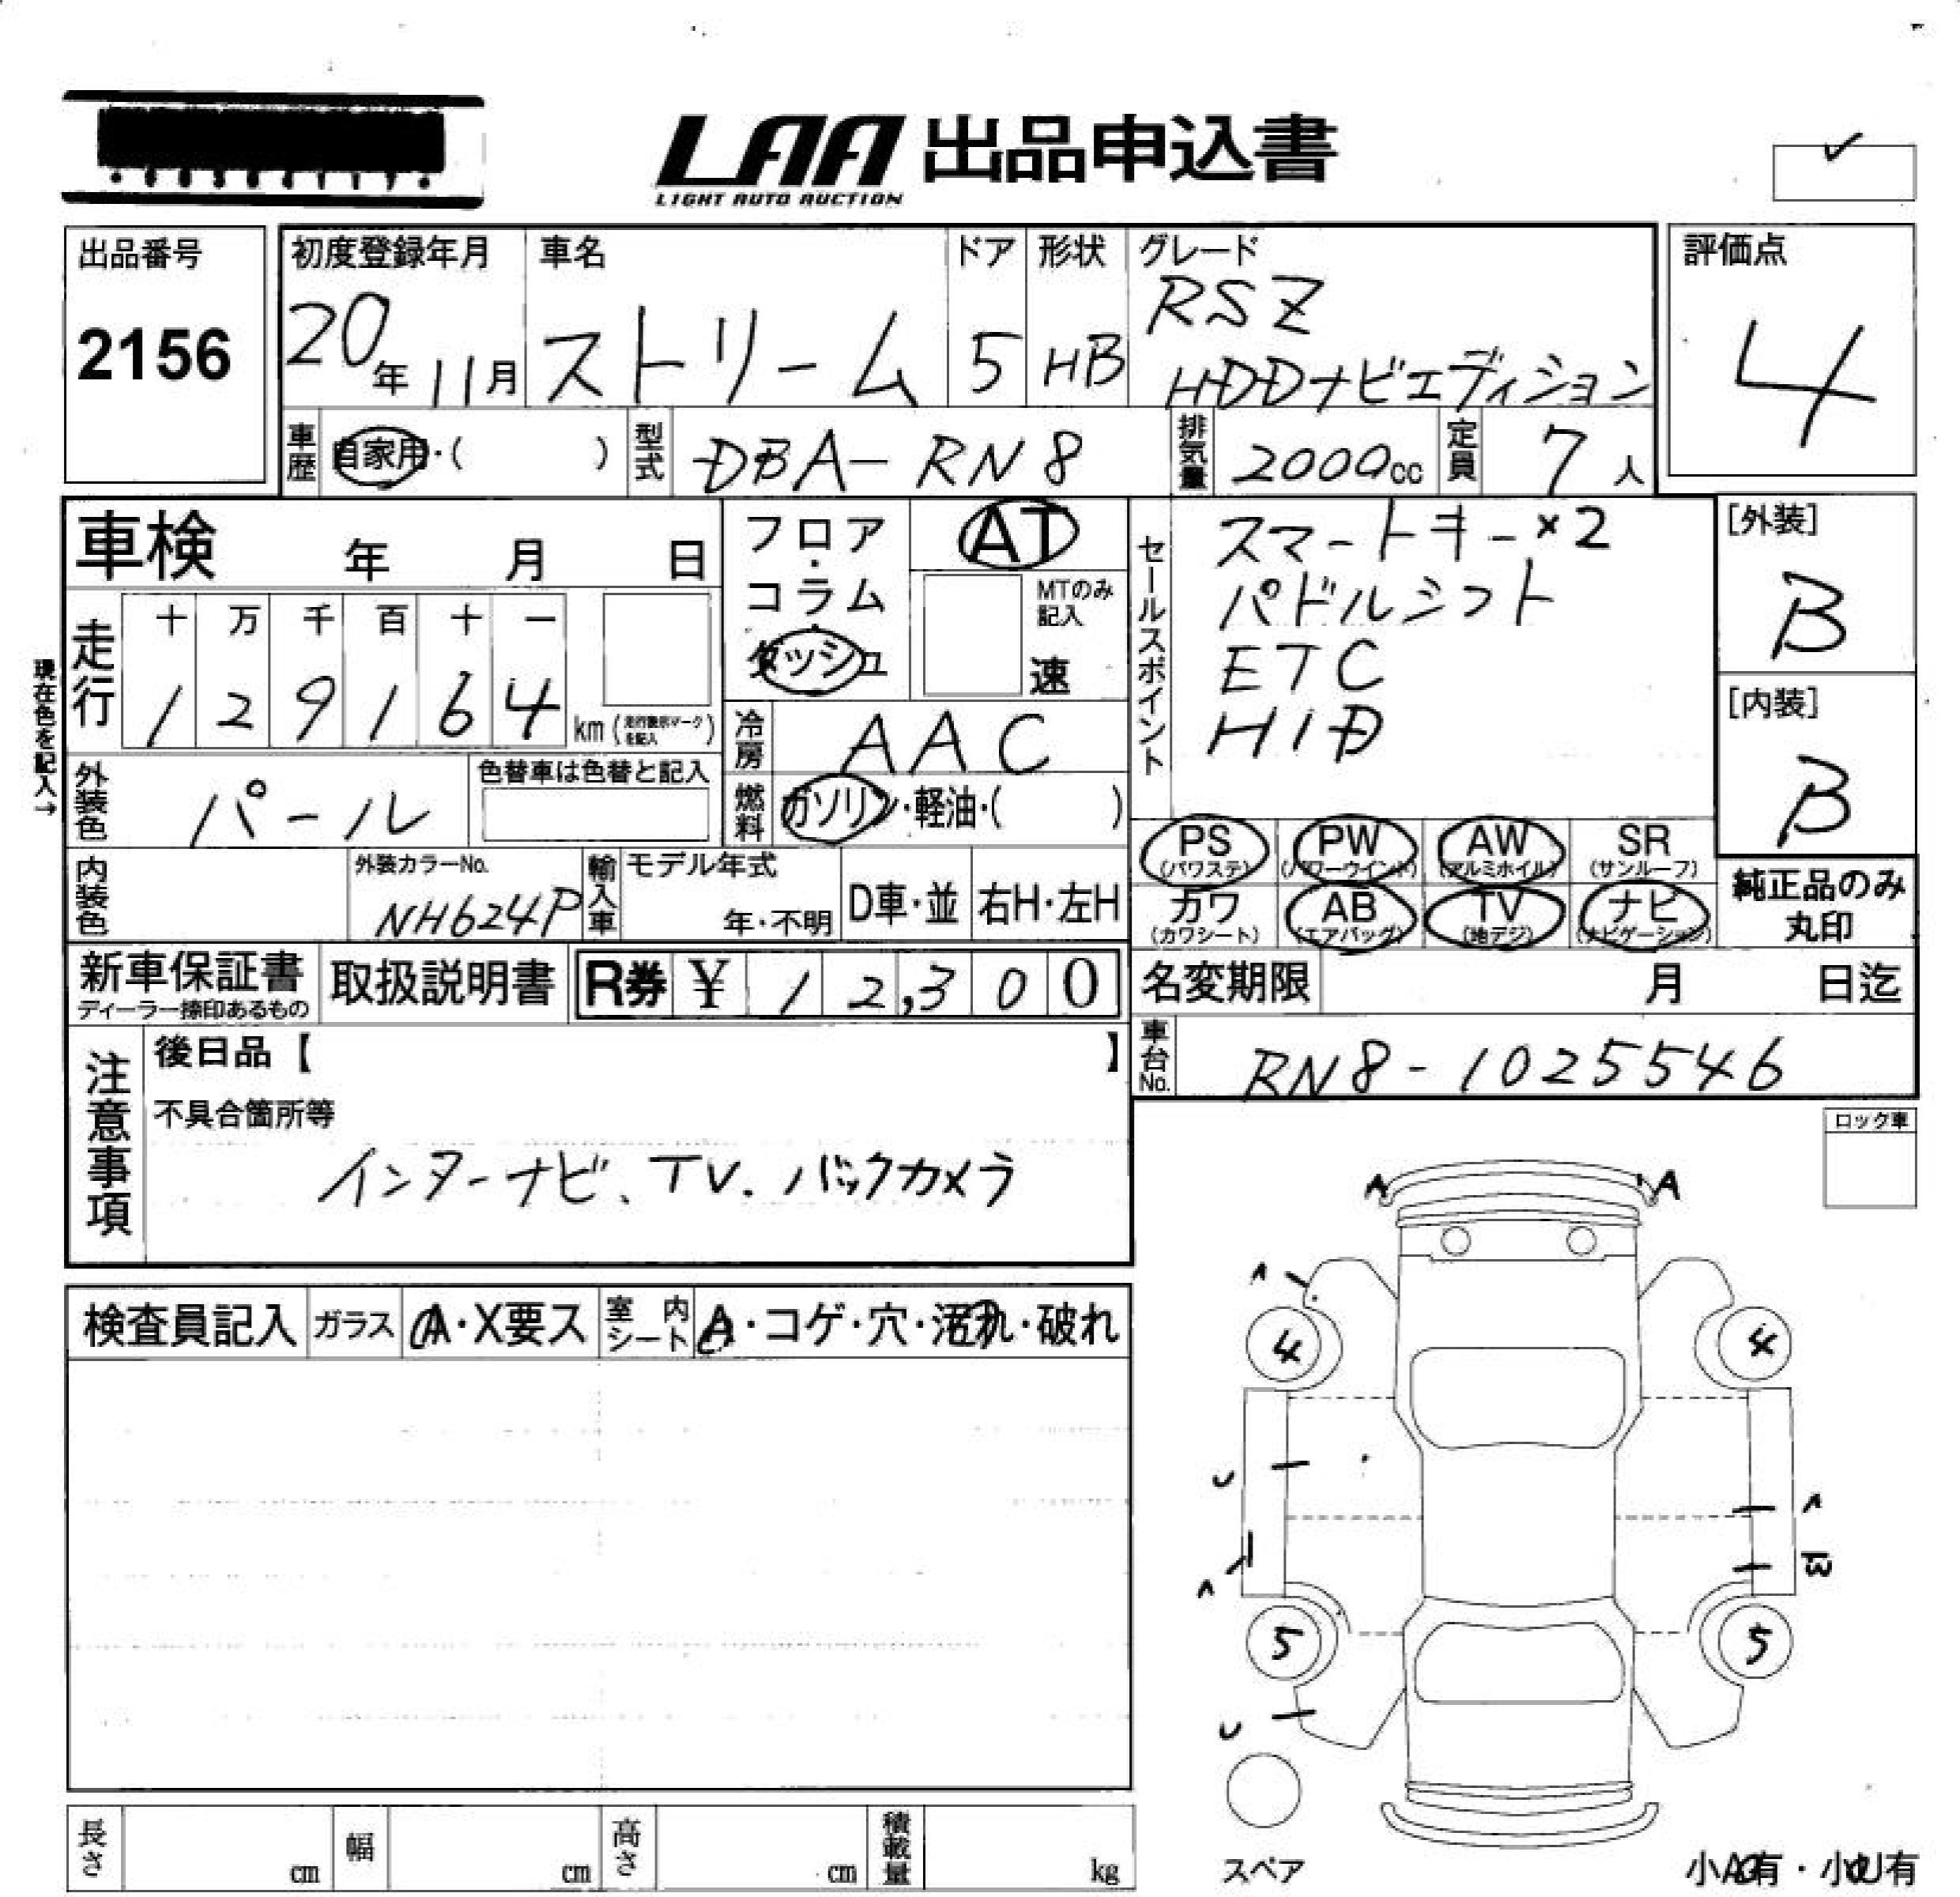 LAA 出品申込書
LIGHT AUTO AUCTION
出品番号
2156
初度登録年月
20年 11月
車名
ストリーム
ドア
5
形状
HB
グレード
RSZ
HDDナビエディション
評価点
4
車歴 自家用・( )
型式 DBA-RN8
排気量 2000cc
定員 7人
車検 年 月 日
フロア・コラム・ダッシュ
AT
MTのみ記入
速
現在色を記入→
走行
十 万 千 百 十 一
1 2 9 1 6 4 km (走行表示マークを記入)
冷房 AAC
外装色 パール
色替車は色替と記入
燃料 ガソリン・軽油・( )
セールスポイント
スマートキー×2
パドルシフト
ETC
HID
[外装]
B
[内装]
B
PS (パワステ)
PW (パワーウインド)
AW (アルミホイル)
SR (サンルーフ)
カワ (カワシート)
AB (エアバッグ)
TV (地デジ)
ナビ (ナビゲーション)
純正品のみ丸印
内装色
外装カラーNo.
NH624P
輸入車
モデル年式
年・不明
D車・並
右H・左H
新車保証書
ディーラー捺印あるもの
取扱説明書
R券 ¥ 12,300
名変期限 月 日迄
車台No. RN8-1025546
注意事項
後日品【 】
不具合箇所等
インターナビ、TV、バックカメラ
ロック車
検査員記入
ガラス A・X要ス
室内シート A・コゲ・穴・汚れ・破れ
A A
4 4
U
B
5 5
U
スペア
小A有・小U有
長さ cm
幅 cm
高さ cm
積載量 kg